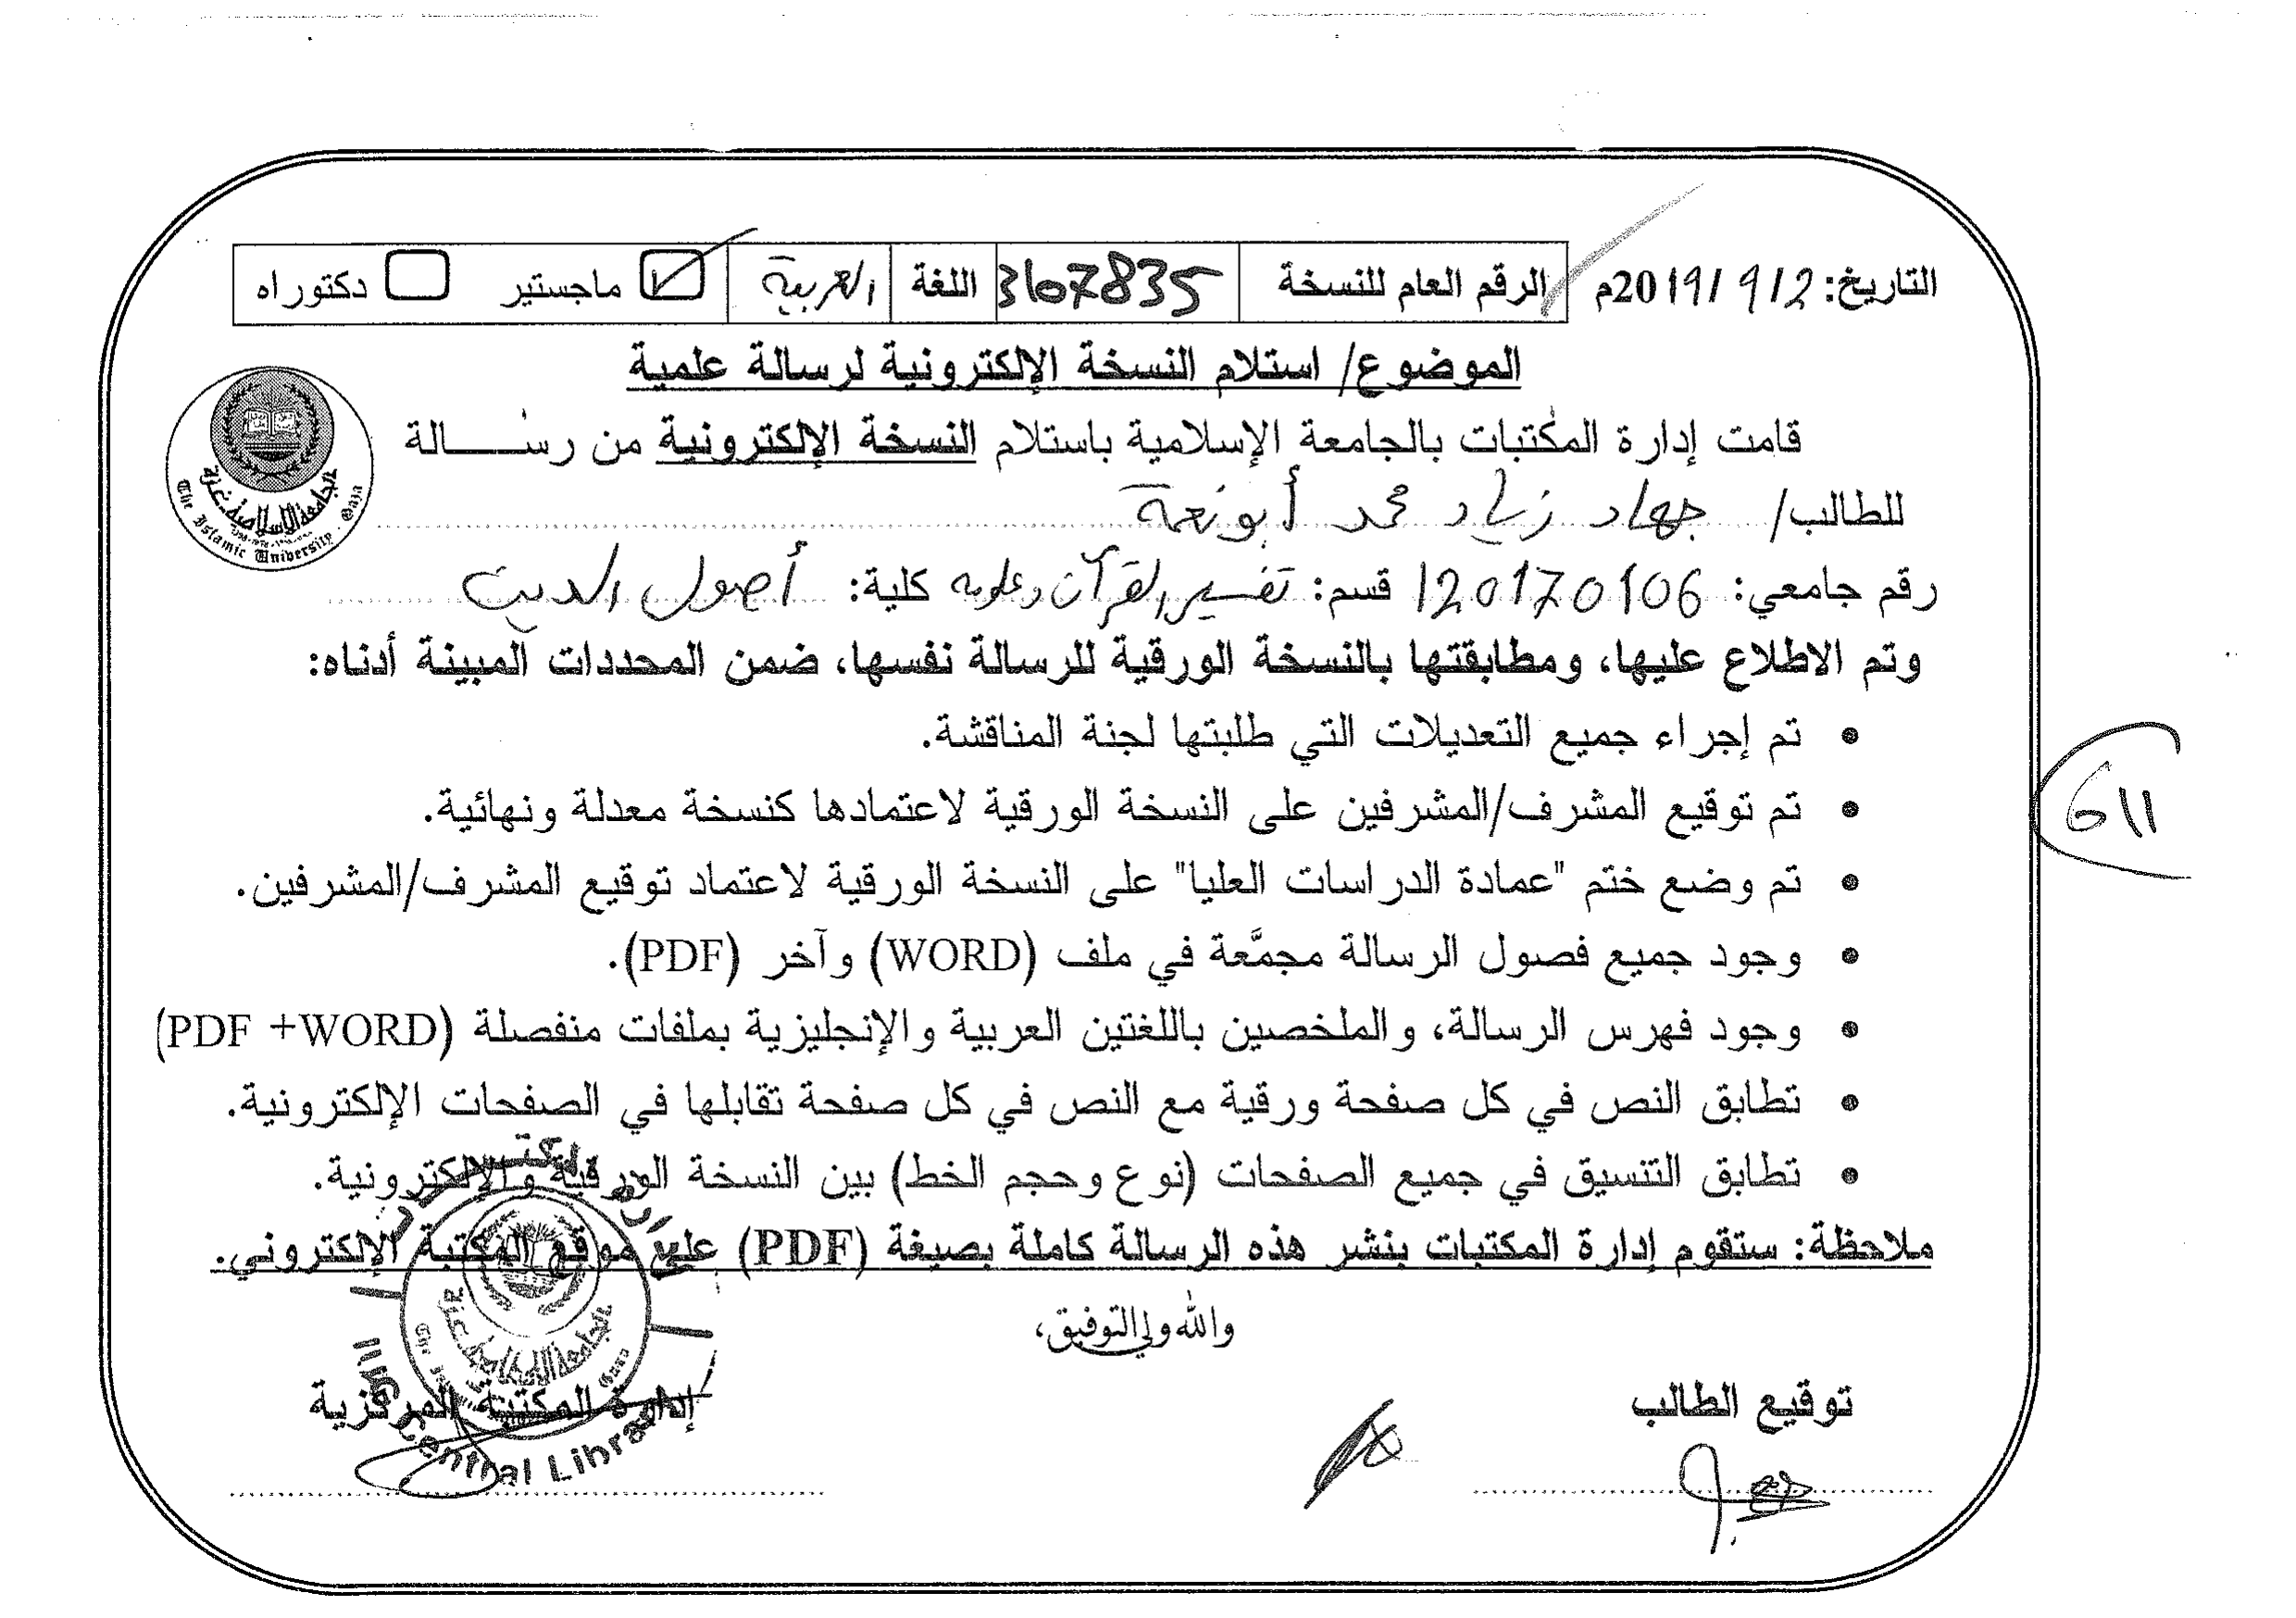 التاريخ: 2019/9/2م الرقم العام للنسخة 3167835 اللغة العربية ماجستير دكتوراه
الموضوع/ استلام النسخة الإلكترونية لرسالة علمية
قامت إدارة المكتبات بالجامعة الإسلامية باستلام النسخة الإلكترونية من رسالة
للطالب/ جهاد زياد محمد أبو نعمة
رقم جامعي: 120170106 قسم: تفسير القرآن وعلومه كلية: أصول الدين
وتم الاطلاع عليها، ومطابقتها بالنسخة الورقية للرسالة نفسها، ضمن المحددات المبينة أدناه:
• تم إجراء جميع التعديلات التي طلبتها لجنة المناقشة.
• تم توقيع المشرف/المشرفين على النسخة الورقية لاعتمادها كنسخة معدلة ونهائية.
• تم وضع ختم "عمادة الدراسات العليا" على النسخة الورقية لاعتماد توقيع المشرف/المشرفين.
• وجود جميع فصول الرسالة مجمَّعة في ملف (WORD) وآخر (PDF).
• وجود فهرس الرسالة، والملخصين باللغتين العربية والإنجليزية بملفات منفصلة (PDF +WORD)
• تطابق النص في كل صفحة ورقية مع النص في كل صفحة تقابلها في الصفحات الإلكترونية.
• تطابق التنسيق في جميع الصفحات (نوع وحجم الخط) بين النسخة الورقية والإلكترونية.
ملاحظة: ستقوم إدارة المكتبات بنشر هذه الرسالة كاملة بصيغة (PDF) على موقع المكتبة الإلكتروني.
والله ولي التوفيق،
توقيع الطالب إدارة المكتبة المركزية
الجامعة الإسلامية غزة
The Islamic University Gaza
Central Library